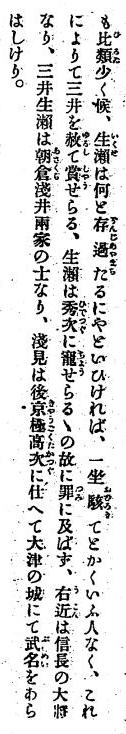 も比類少く候、生瀬は何と存過たるにやといひければ、一坐駭てとかくいふ人なく、これ
によりて三井を赦て賞せらる、生瀬は秀次に寵せらるゝの故に罪に及ばず、右近は信長の大將
なり、三井生瀬は朝倉淺井兩家の士なり、淺見は後京極高次に仕へて大津の城にて武名をあら
はしけり。